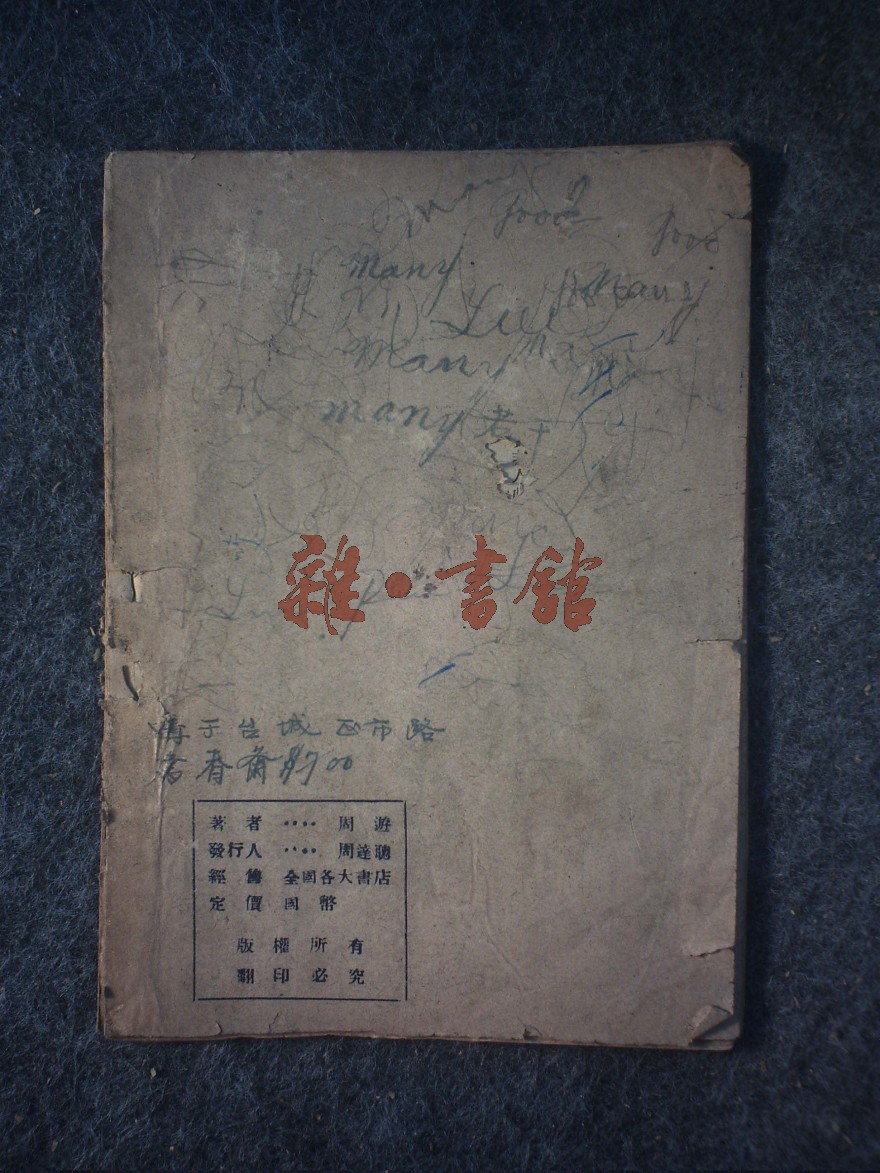 many
good
good
many
many
Lui
many
many 若干
雜·書館
于台城西市路
若春齋 $700
著者 ···· 周遊
發行人 ···· 周達聰
經售 全國各大書店
定價 國幣
版權所有
翻印必究